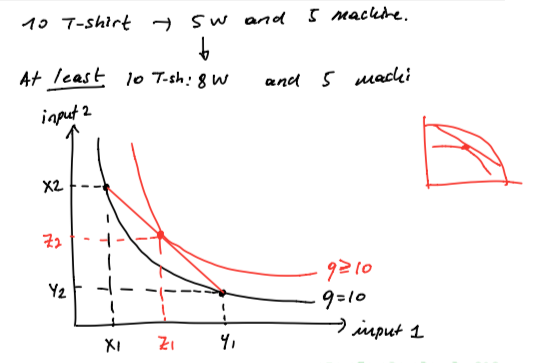 10 T-shirt → 5 W and 5 machine.
↓
At least 10 T-sh: 8 W and 5 machi
input 2
X2
Z2
Y2
q≥10
q=10
input 1
X1 Z1 Y1